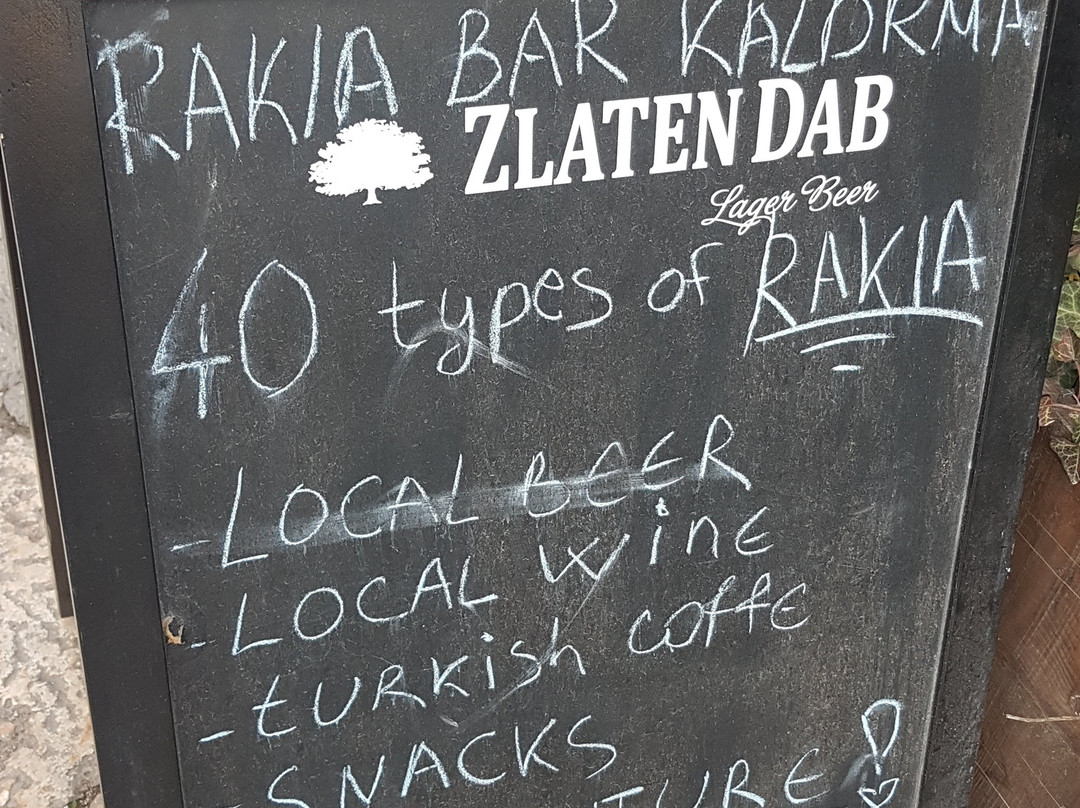 RAKIA BAR KALDRMA
ZLATEN DAB
Lager Beer
40 types of RAKIA
- LOCAL BEER
- LOCAL WinE
- tURKish coffE
- SNACKS